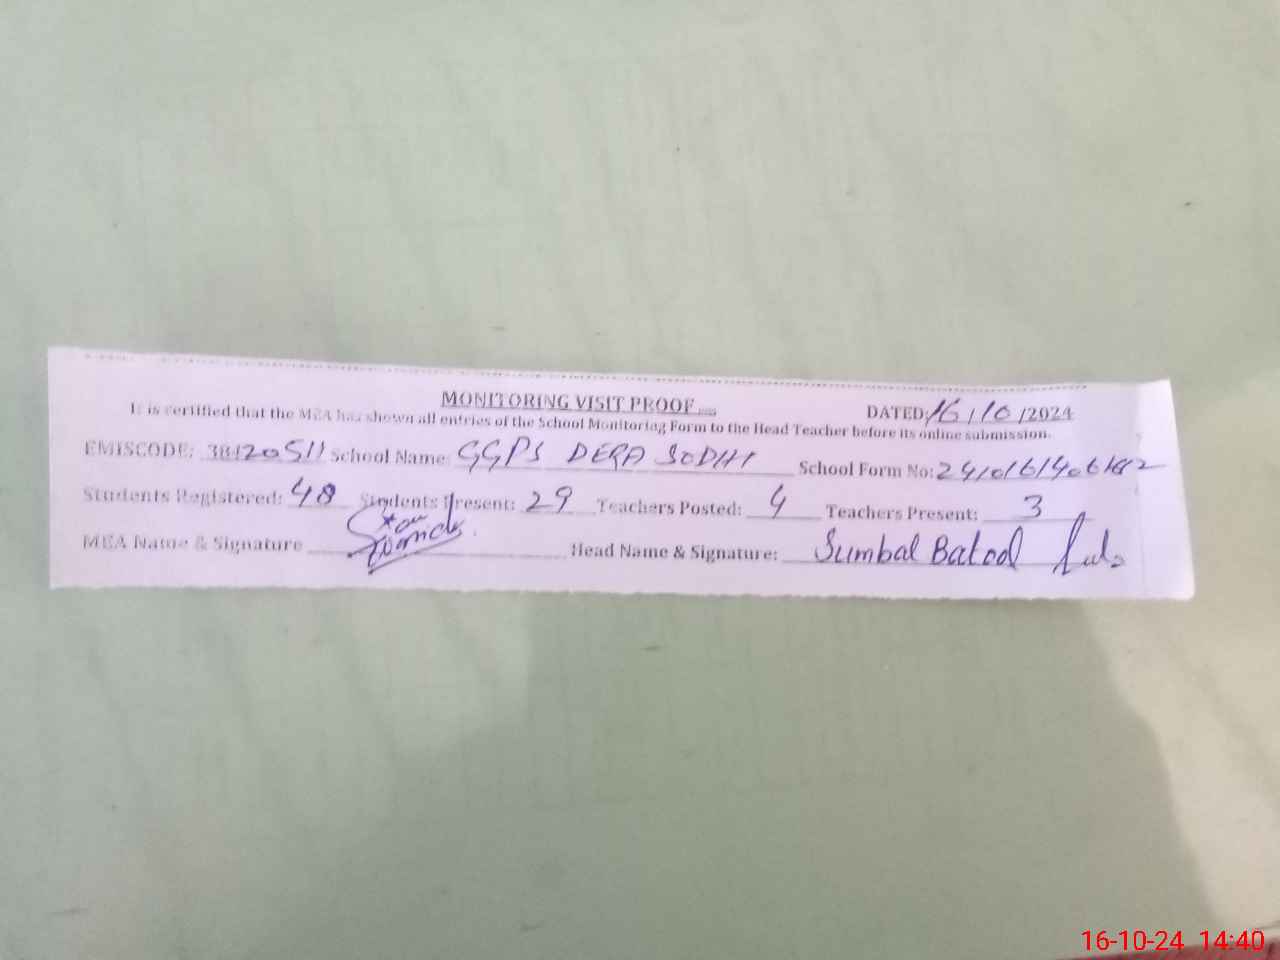 MONITORING VISIT PROOF
DATED: 16/10/2024
It is certified that the MEA has shown all entries of the School Monitoring Form to the Head Teacher before its online submission.
EMISCODE: 38420511 School Name: GGPS DERA SODHI School Form No:
Students Registered: 48 Students Present: 29 Teachers Posted: 4 Teachers Present: 3
MEA Name & Signature Head Name & Signature: Sumbal Batool
16-10-24 14:40